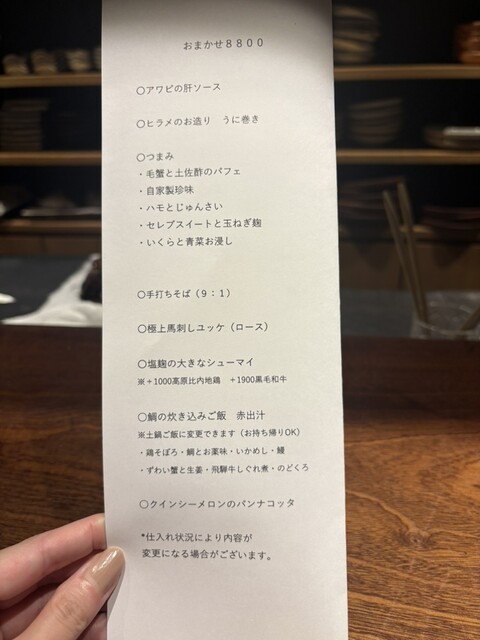 おまかせ8800
○アワビの肝ソース
○ヒラメのお造り　うに巻き
○つまみ
・毛蟹と土佐酢のパフェ
・自家製珍味
・ハモとじゅんさい
・セレブスイートと玉ねぎ麹
・いくらと青菜お浸し
○手打ちそば（9：1）
○極上馬刺しユッケ（ロース）
○塩麹の大きなシューマイ
※＋1000高原比内地鶏　＋1900黒毛和牛
○鯛の炊き込みご飯　赤出汁
※土鍋ご飯に変更できます（お持ち帰りOK）
・鶏そぼろ・鯛とお薬味・いかめし・鰻
・ずわい蟹と生姜・飛騨牛しぐれ煮・のどくろ
○クインシーメロンのパンナコッタ
*仕入れ状況により内容が
変更になる場合がございます。